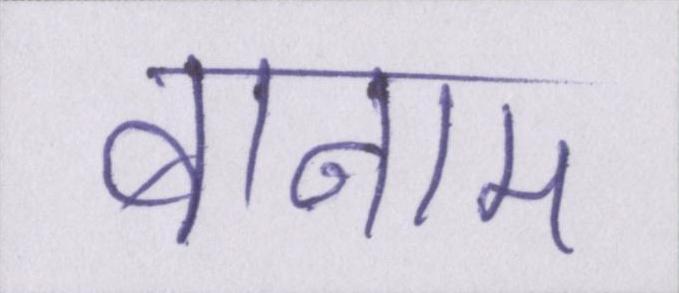 बानाम